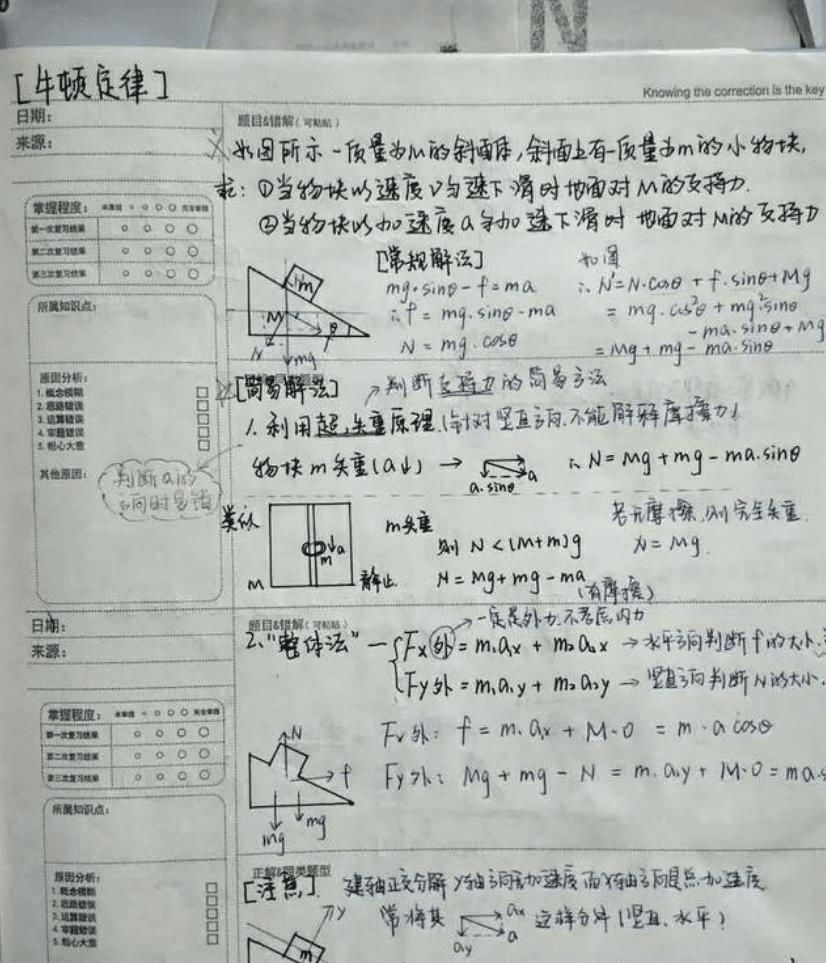 [牛顿定律]
Knowing the correction is the key
日期：
来源：
题目&错解（可粘贴）
如图所示一质量为M的斜面体，斜面上有一质量为m的小物块，
求：①当物块以速度v匀速下滑时地面对M的支持力.
②当物块以加速度a匀加速下滑时 地面对M的支持力
掌握程度：
未掌握 完全掌握
第一次复习结果
第二次复习结果
第三次复习结果
所属知识点：
[常规解法]
mg·sinθ - f = ma
∴ f = mg·sinθ - ma
N = mg·cosθ
如图
∴ N' = N·cosθ + f·sinθ + Mg
= mg·cos²θ + mg²sinθ
- ma·sinθ + Mg
= Mg + mg - ma·sinθ
m
M
θ
N
mg
原因分析：
1. 概念模糊
2. 思路错误
3. 运算错误
4. 审题错误
5. 粗心大意
其他原因：
判断a的
方向时易错
[简易解法] → 判断支持力的简易方法
1. 利用超,失重原理.(针对竖直方向,不能解释摩擦力!
物块m失重(a↓) → a a·sinθ ∴ N = Mg + mg - ma·sinθ
类似
M
m
a
静止
m失重
则 N < (M+m)g
N = Mg + mg - ma
(有摩擦)
若无摩擦,则完全失重
N = Mg.
日期：
来源：
题目&错解（可粘贴）
→ 一定是外力.不考虑内力
2. "整体法" — Fx外 = m₁a₁x + m₂a₂x → 水平方向判断f的大小.
Fy外 = m₁a₁y + m₂a₂y → 竖直方向判断N的大小.
掌握程度：
未掌握 完全掌握
第一次复习结果
第二次复习结果
第三次复习结果
所属知识点：
N
f
Mg
mg
Fx外： f = m·ax + M·0 = m·a cosθ
Fy外： Mg + mg - N = m·ay + M·0 = ma·s
原因分析：
1. 概念模糊
2. 思路错误
3. 运算错误
4. 审题错误
5. 粗心大意
正解&同类题型
[注意]. 建轴正交分解
常将其 ax a ay 这样分解(竖直、水平)
y
m